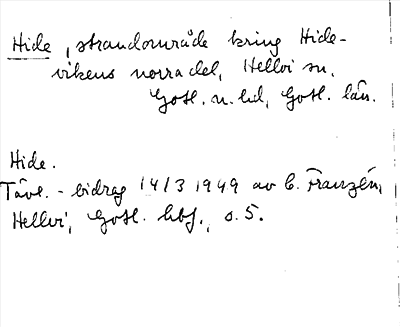 Hide, strandområde kring Hide-
vikens norra del, Hellvi sn,
Gotl. n. hd, Gotl. län.
Hide.
Tävl.-bidrag 14/3 1949 av C. Franzén,
Hellvi, Gotl. hbf., s. 5.